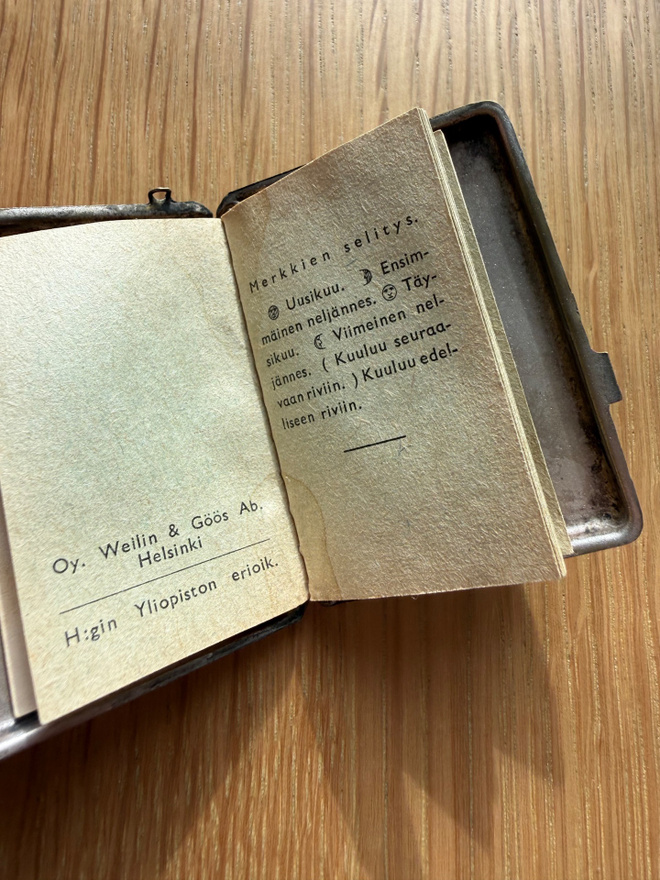 Oy. Weilin & Göös Ab.
Helsinki
H:gin Yliopiston erioik.
Merkkien selitys.
🌚 Uusikuu. ☽ Ensim-
mäinen neljännes. 🌝 Täy-
sikuu. ☾ Viimeinen nel-
jännes. ( Kuuluu seuraa-
vaan riviin. ) Kuuluu edel-
liseen riviin.